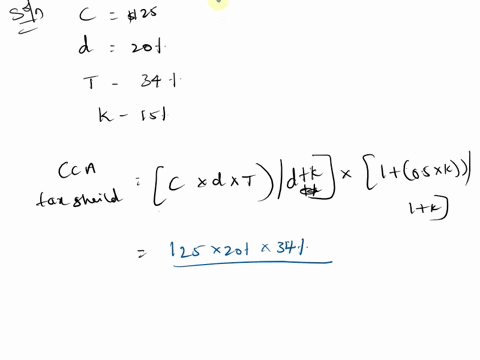 Soln C = $125
d = 20%
T - 34%
K - 15%
CCA tax sheild = [C x d x T) | d+k] x [1+(0.5 x k)) | 1+k]
= 125 x 20% x 34%